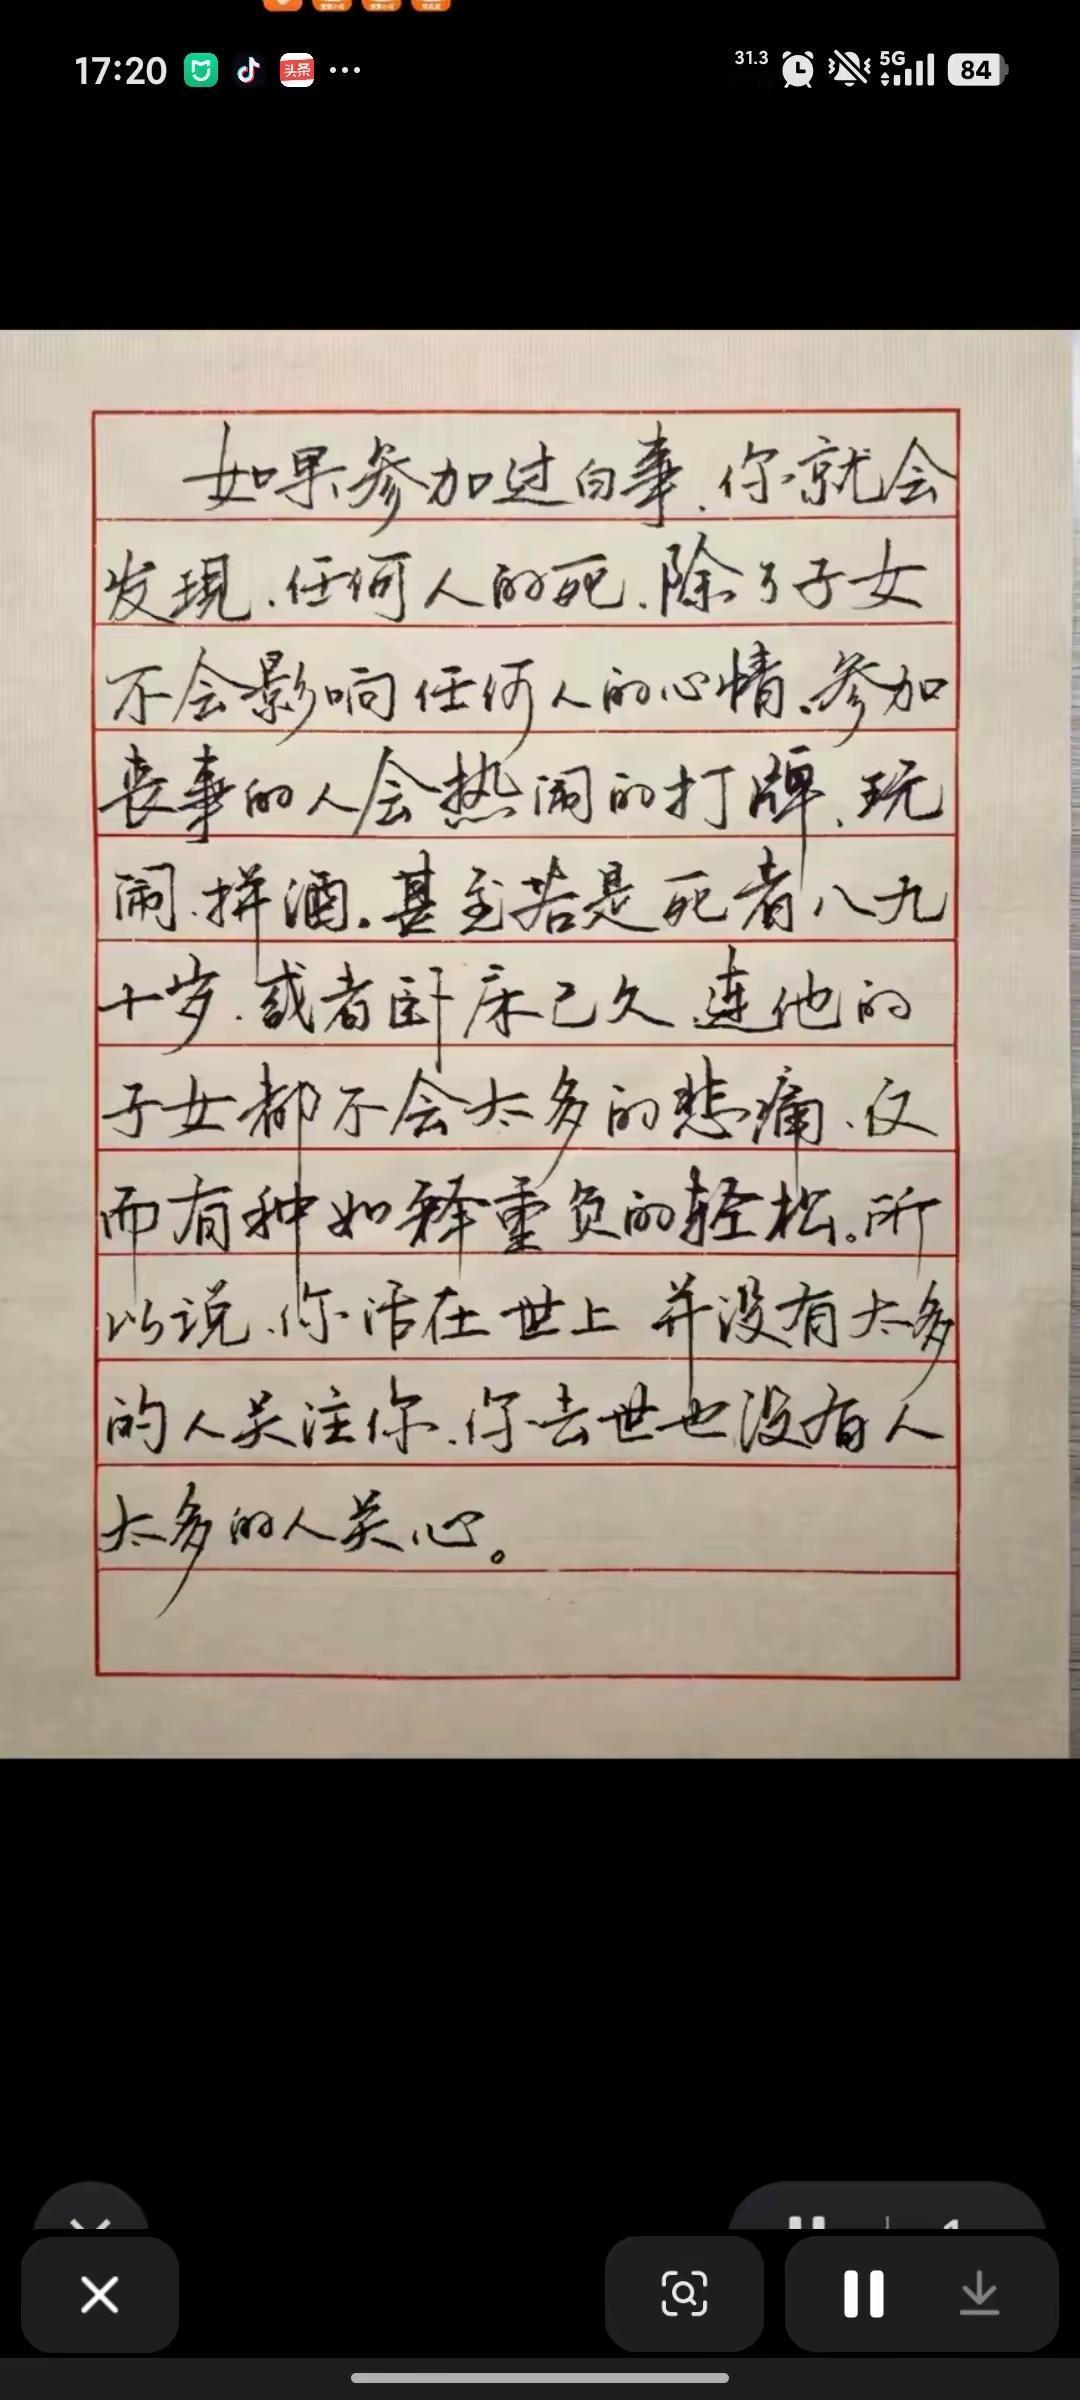 17:20 头条 31.3 5G 84
如果参加过白事、你就会
发现、任何人的死、除了子女
不会影响任何人的心情、参加
丧事的人会热闹的打牌、玩
闹、拼酒。甚至若是死者八九
十岁、或者卧床已久、连他的
子女都不会太多的悲痛、反
而有种如释重负的轻松。所
以说、你活在世上 并没有太多
的人关注你、你去世也没有人
太多的人关心。